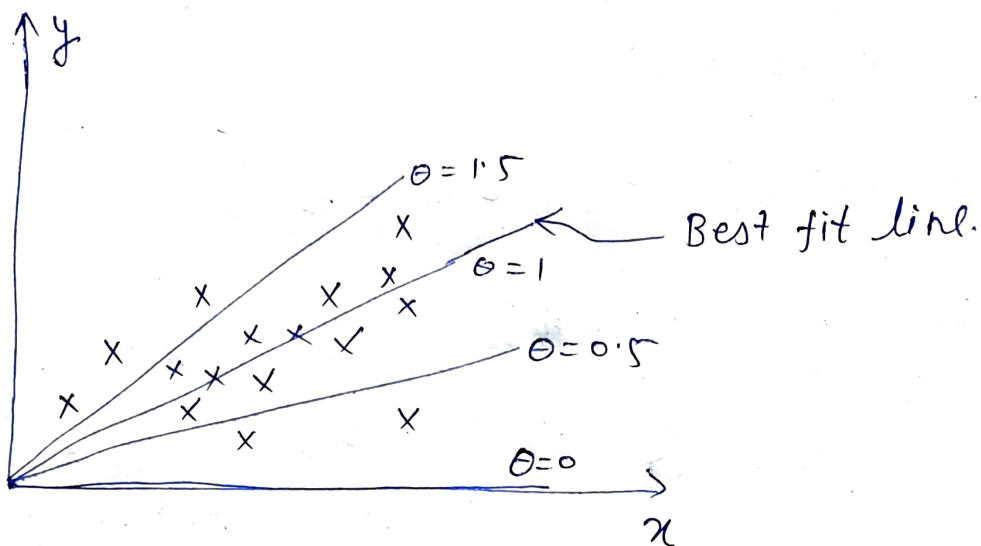 y
θ = 1.5
Best fit line.
θ = 1
θ = 0.5
θ = 0
x